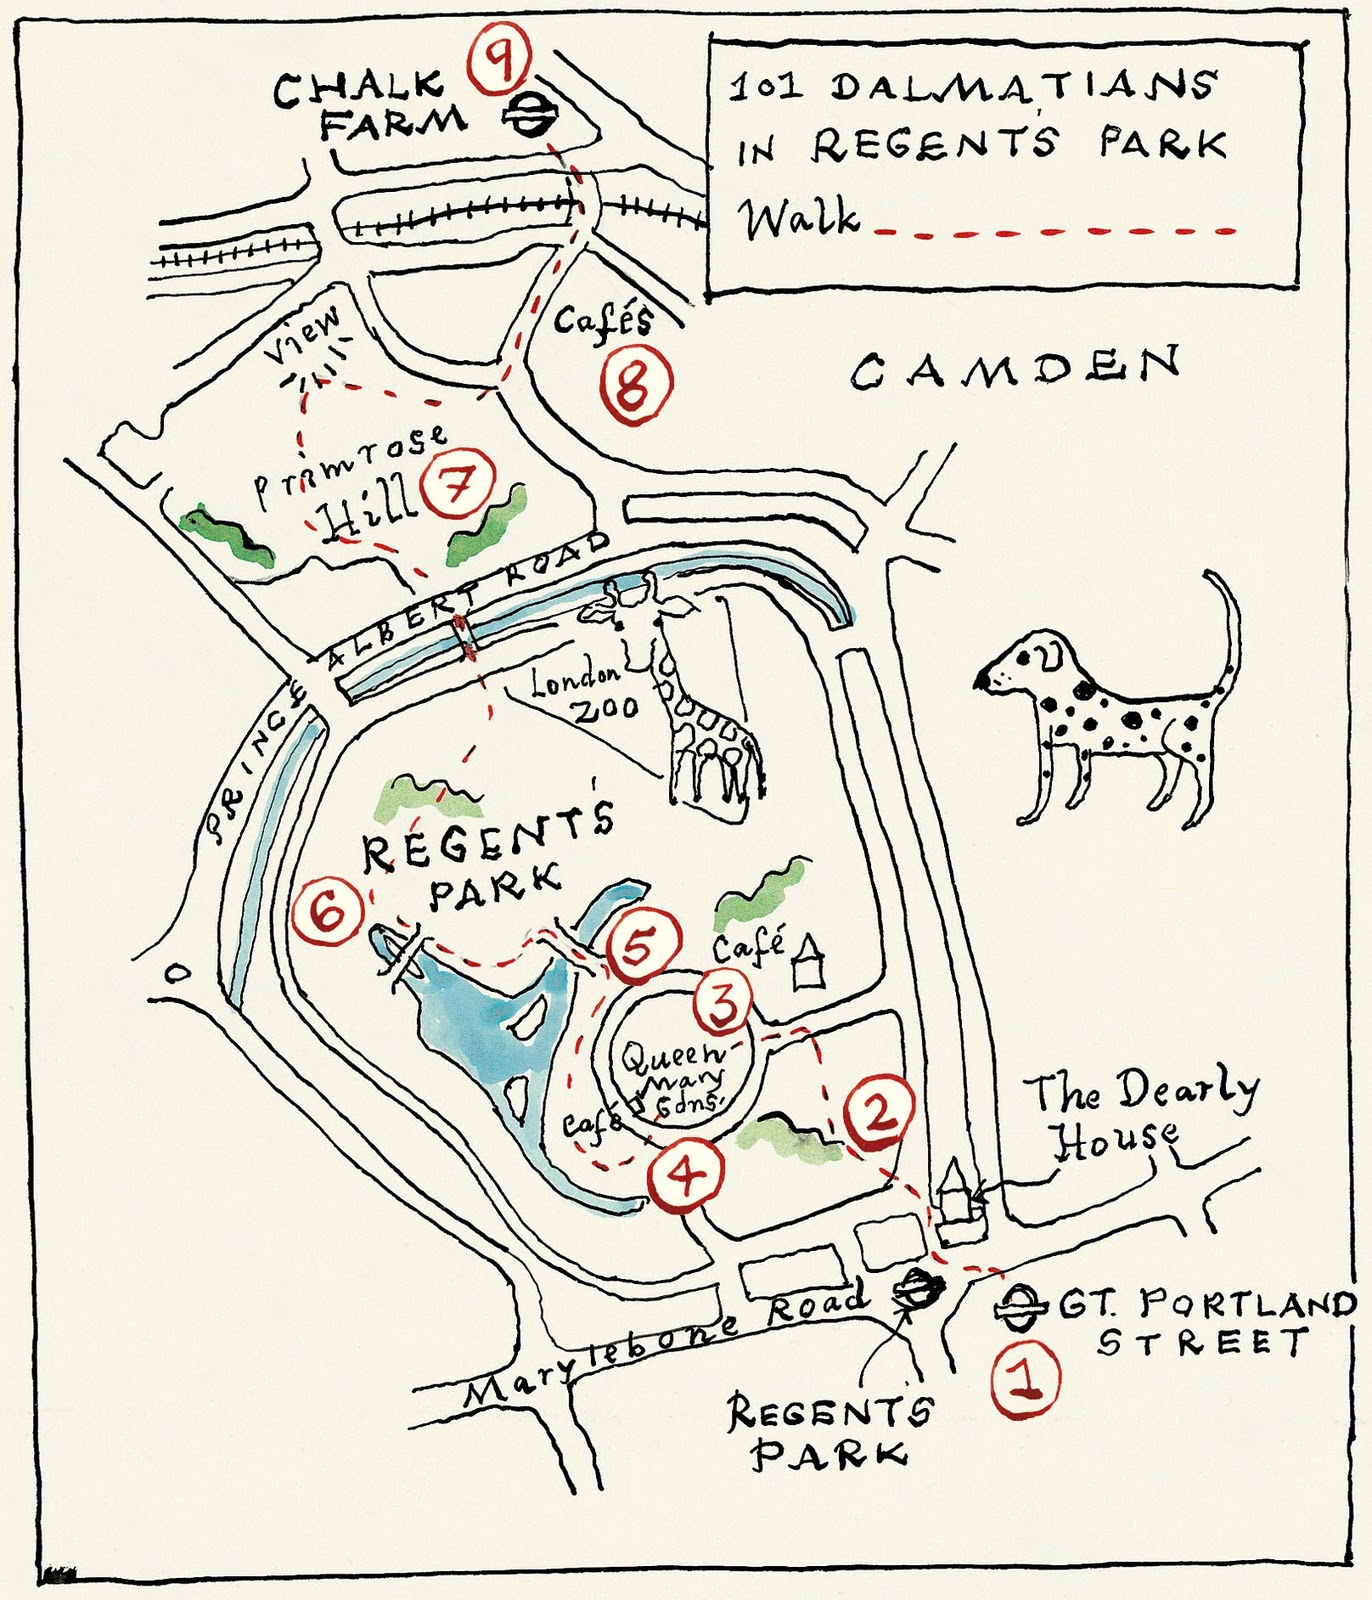 9
CHALK
FARM
101 DALMATIANS
IN REGENT'S PARK
Walk
View
Cafés
8
CAMDEN
Primrose
Hill
7
PRINCE ALBERT ROAD
London
ZOO
REGENT'S
PARK
6
5
Café
3
Queen
Mary
Gdns.
Café
2
4
The Dearly
House
Marylebone Road
GT. PORTLAND
STREET
1
REGENT'S
PARK